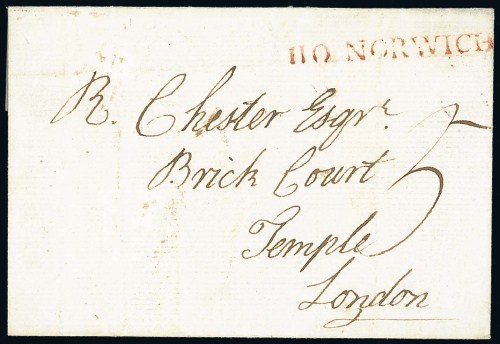 110 NORWICH
R. Chester Esqr.
Brick Court
Temple
London
5